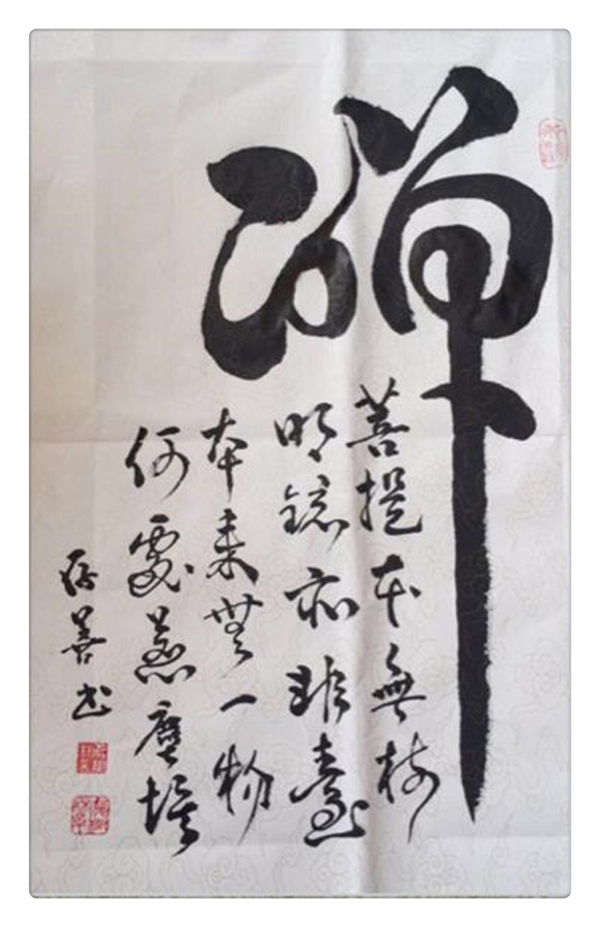 禪
菩提本無樹
明鏡亦非臺
本来無一物
何處惹塵埃
善书